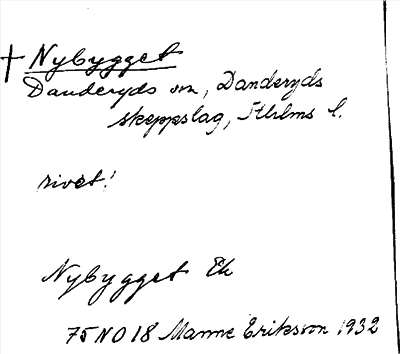 † Nybygget
Danderyds sn, Danderyds
skeppslag, Sthlms l.
rivet!
Nybygget Ek
75 NO 18 Manne Eriksson 1932